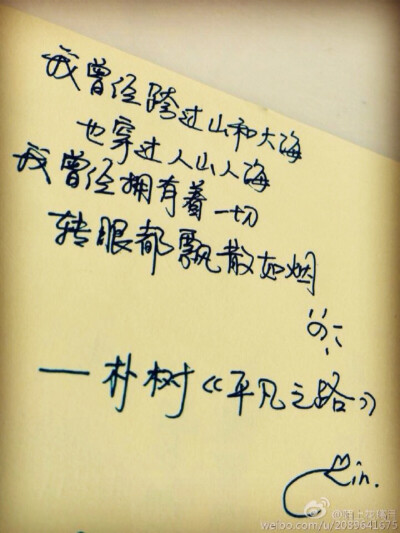 我曾经跨过山和大海
也穿过人山人海
我曾经拥有着一切
转眼都飘散如烟
一朴树《平凡之路》
Lin.
weibo.com/u/2089641675